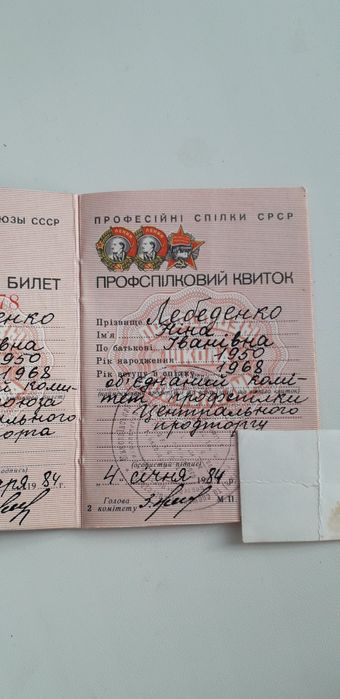 ЮЗЫ СССР
БИЛЕТ
78
1950
1968
19 84 г.
ПРОФЕСІЙНІ СПІЛКИ СРСР
ПРОФСПІЛКОВИЙ КВИТОК
Прізвище Лебеденко
Ім'я Ніна
По батькові Іванівна
Рік народження 1950
Рік вступу в спілку 1968
об'єднаний комі-
тет профспілки
Центрального
продторгу
(особистий підпис)
4 січня 1984 р.
Голова
2 комітету
М.П.